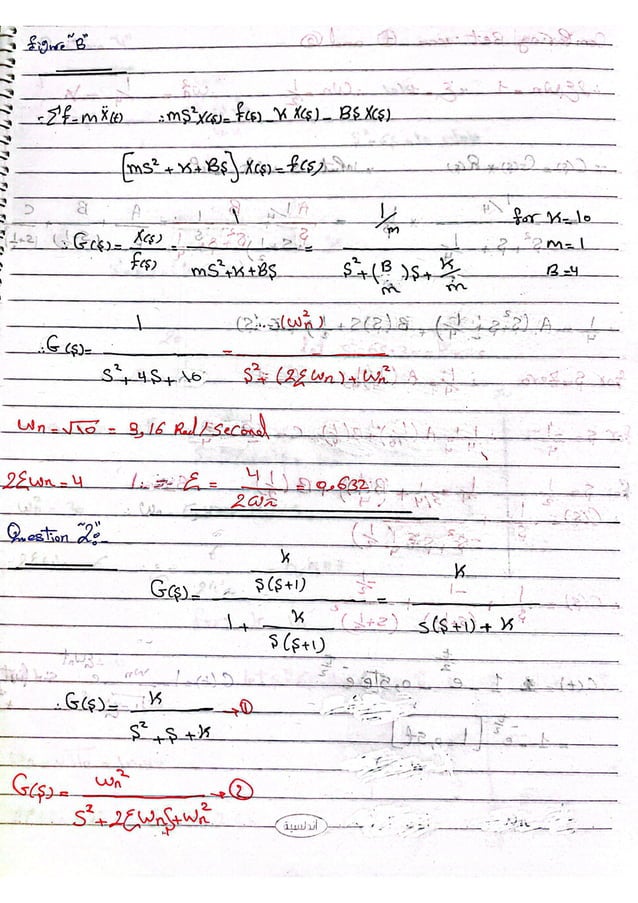 figure "B"
∴ Σf = mẍ(t) ∴ mS²X(S) = f(S) - K X(S) - BS X(S)
[mS² + K + BS] X(S) = f(S)
∴ G(S) = X(S)/f(S) = 1/(mS² + K + BS) = (1/m)/(S² + (B/m)S + K/m)
for K = 10
m = 1
B = 4
∴ G(S) = 1/(S² + 4S + 10) = (ωn²)/(S² + (2ξωn) + ωn²)
ωn = √10 = 3,16 Rad/Second
2ξωn = 4 ∴ ξ = 4/(2ωn) = 0.632
Question "2":-
G(S) = (K/(S(S+1)))/(1 + K/(S(S+1))) = K/(S(S+1) + K)
∴ G(S) = K/(S² + S + K) → ①
G(S) = ωn²/(S² + 2ξωnS + ωn²) → ②
أندلسية